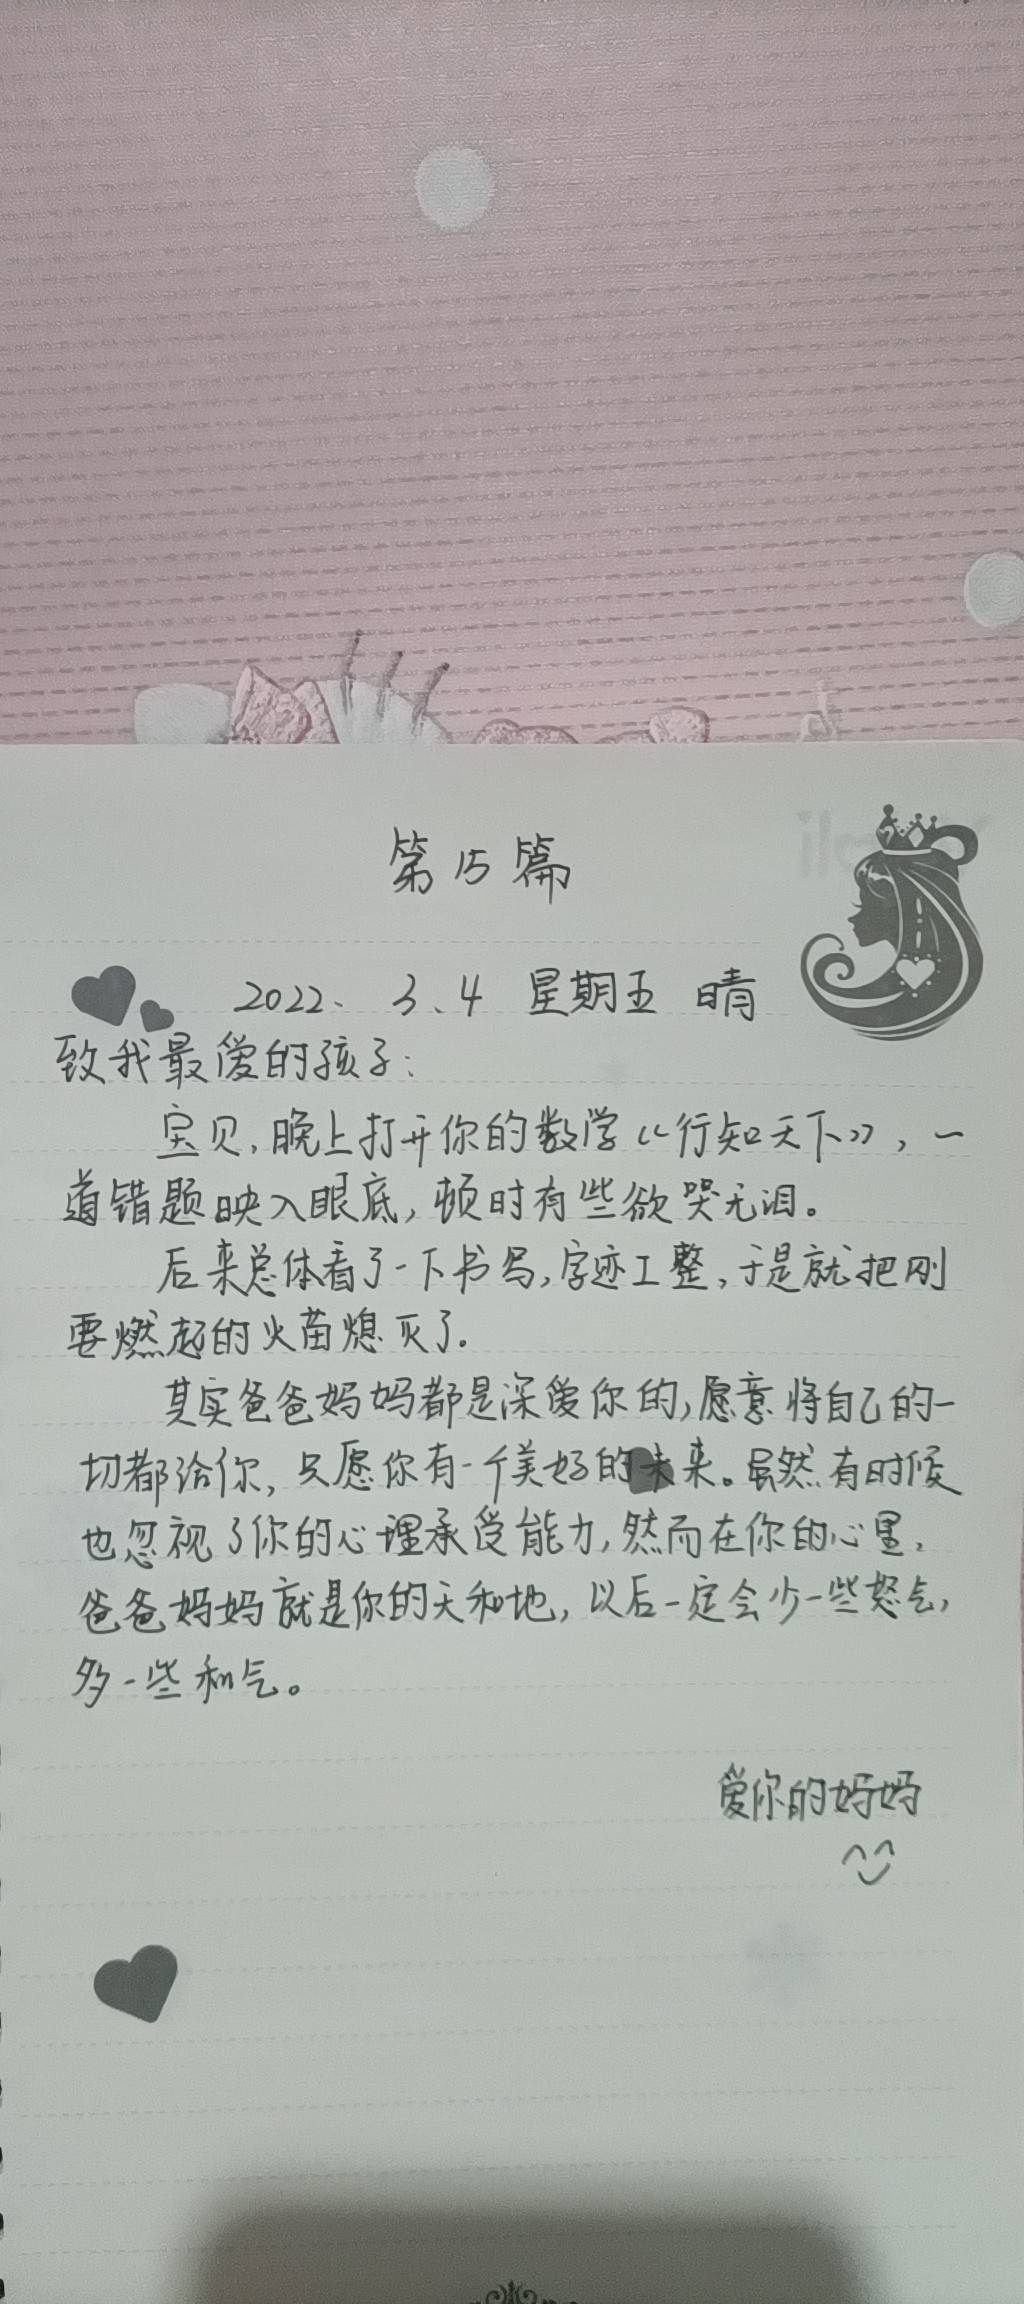 第15篇
2022、 3、4 星期五 晴
致我最爱的孩子：
宝贝，晚上打开你的数学《行知天下》，一
道错题映入眼底，顿时有些欲哭无泪。
后来总体看了一下书写，字迹工整，于是就把刚
要燃起的火苗熄灭了.
其实爸爸妈妈都是深爱你的，愿意将自己的一
切都给你，只愿你有一个美好的未来。虽然有时候
也忽视了你的心理承受能力，然而在你的心里，
爸爸妈妈就是你的天和地，以后一定会少一些怒气，
多一些和气。
爱你的妈妈